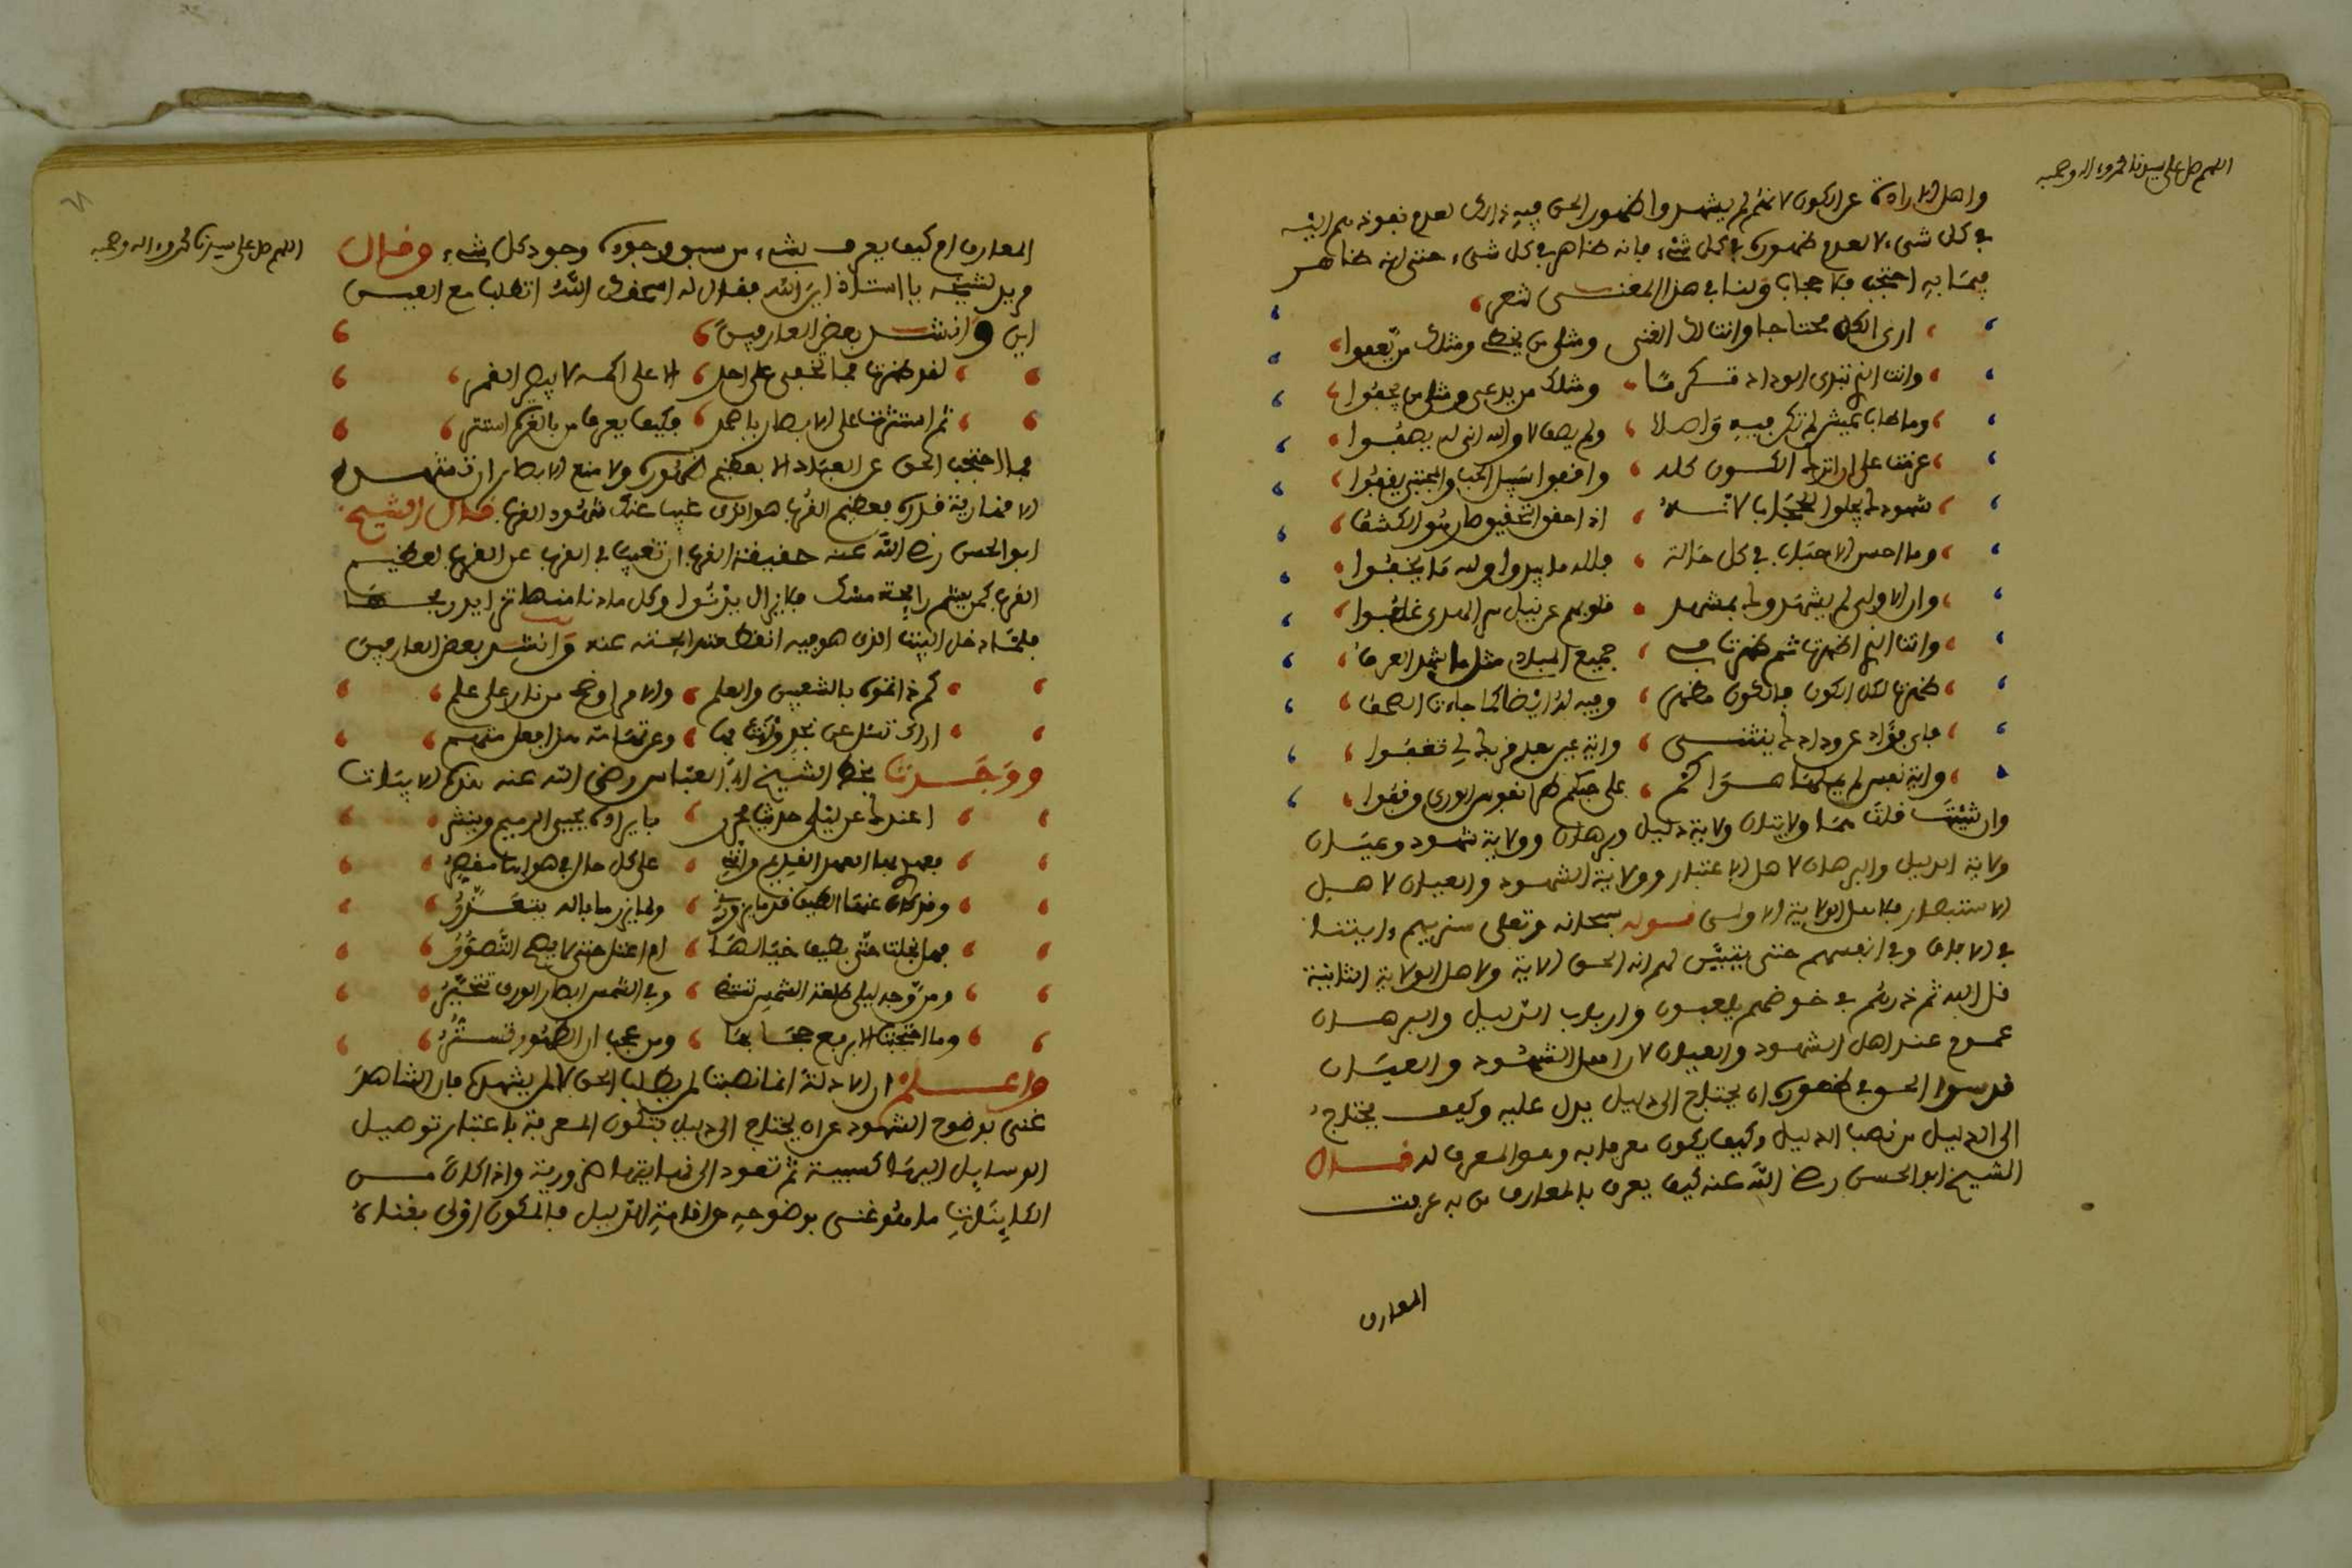 اللهم صل على سيدنا محمد وءاله وصحبه
واهل الارادة عن الكون لانهم لم يشهدوا ظهور الحق فيه ذلك لعدم نفوذهم اليه
في كل شيء لا لعدم ظهوره في كل شيء فانه ظاهر في كل شيء حتى انه ظاهر
فيما به احتجب فلا حجاب ولنا في هذا المعنى شعر
ارى الكل محتاجا وانت لك الغنى ومثلي من يخطي ومثلك من يعفوا
وانت الذي تبدي الوداد تكرما ومثلك من يدعى ومثلي من يجفوا
وما طاب عيش لم تكن فيه واصلا ولم يصف لا والله انى له يصفوا
عزمت على ان اترك الكون كله واقفوا سبيل الحب والمجتبى يقفوا
وما احسن الاحباب في كل حالة فلله ما يبدوا ولله ما يخفوا
وان الاولى لم يشهدوك بمشهد قلوبهم عن نيل سر الهدى غلف
وانت الذي اظهرت ثم ظهرت في جميع المبادي مثل ما شهد العرف
ظهرت لكل الكون فالكون مظهر وفيه له ايضا كما جاءت الصحف
فاي فؤاد عن ودادك ينثني واية عين بعد قربك لي تغفوا
واية نفس لم يملها هواكم على حبكم طرا نفوس الورى وقفوا
وان شئت قلت هما ولايتان ولاية دليل وبرهان وولاية شهود وعيان
ولاية الدليل والبرهان لاهل الاعتبار وولاية الشهود والعيان لاهل
الاستبصار فلاهل الولاية الاولى قوله سبحانه وتعلى سنريهم ءايتنا
في الافاق وفي انفسهم حتى يتبين لهم انه الحق الاية ولاهل الولاية الثانية
قل الله ثم ذرهم في خوضهم يلعبون وارباب الدليل والبرهان
عموم عند اهل الشهود والعيان لان اهل الشهود والعيان
قدسوا الحق في ظهوره ان يحتاج الى دليل يدل عليه وكيف يحتاج
الى الدليل من نصب الدليل وكيف يكون معرفا به وهو المعرف له قال
الشيخ ابو الحسن رضي الله عنه كيف يعرف بالمعارف من به عرفت
المعارف
اللهم صل على سيدنا محمد وءاله وصحبه
المعارف ام كيف يعرف بشيء من سبق وجوده وجود كل شيء وقال
مريد لشيخه يا استاذ اين الله فقال له اسحقك الله اتطلب مع العين
اين وانشد بعض العارفين
لقد ظهرت فما تخفى على احد الا على اكمه لا يبصر القمر
ثم استترت على الابصار يا احد فكيف يعرف من بالعزة استتر
فما احتجب الحق عن العباد الا بعظيم ظهوره ولا منع الابصار ان تشهده
الا قهارية نوره فعظيم القرب هو الذي غيب عنك شهود القرب قال الشيخ
ابو الحسن رضي الله عنه حقيقة القرب ان تغيب في القرب عن القرب لعظيم
القرب كمن يشم رائحة مسك فلا يزال يدنوا وكل ما دنا منها تزايد ريحها
فلما دخل البيت الذي هو فيه انقطعت رائحته عنه وانشد بعض العارفين
كم ذا تموه بالشعبين والعلم والامر اوضح من نار على علم
اراك تسئل عن نجد وانت بها وعن تهامة هذا فعل متهم
ووجدت بخط الشيخ ابي العباس رضي الله عنه هذه الابيات
اعندك عن ليلى حديث محرر بايراده يحيى الرميم وينشر
فعهدي بها العهد القديم وانني على كل حال في هواها مقصر
وقد كان عنها الطيف قدما يزورني ولما يزر ما باله يتعذر
فهل بخلت حتى بطيف خيالها ام اعتل حتى لا يصح التصور
ومن وجه ليلى طلعة الشمس تستضي وفي الشمس ابصار الورى تتحير
وما احتجبت الا برفع حجابها ومن عجب ان الظهور تستر
واعلم ان الادلة انما نصبت لمن يطلب الحق لا لمن يشهده فان الشاهد
غني بوضوح الشهود عن ان يحتاج الى دليل فتكون المعرفة باعتبار توصيل
الوسايل اليها كسبية ثم تعود الى نهايتها ضرورية واذا كان من
الكاينات ما هو غني بوضوحه عن اقامة الدليل فالمكون اولى بغناه